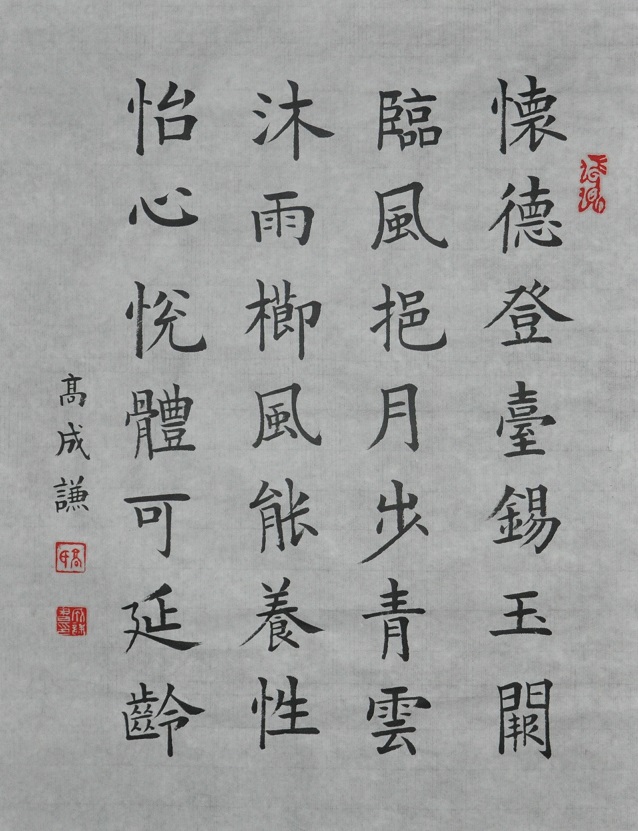 懷德登臺錫玉闕
臨風挹月步青雲
沐雨櫛風能養性
怡心悅體可延齡
高成謙